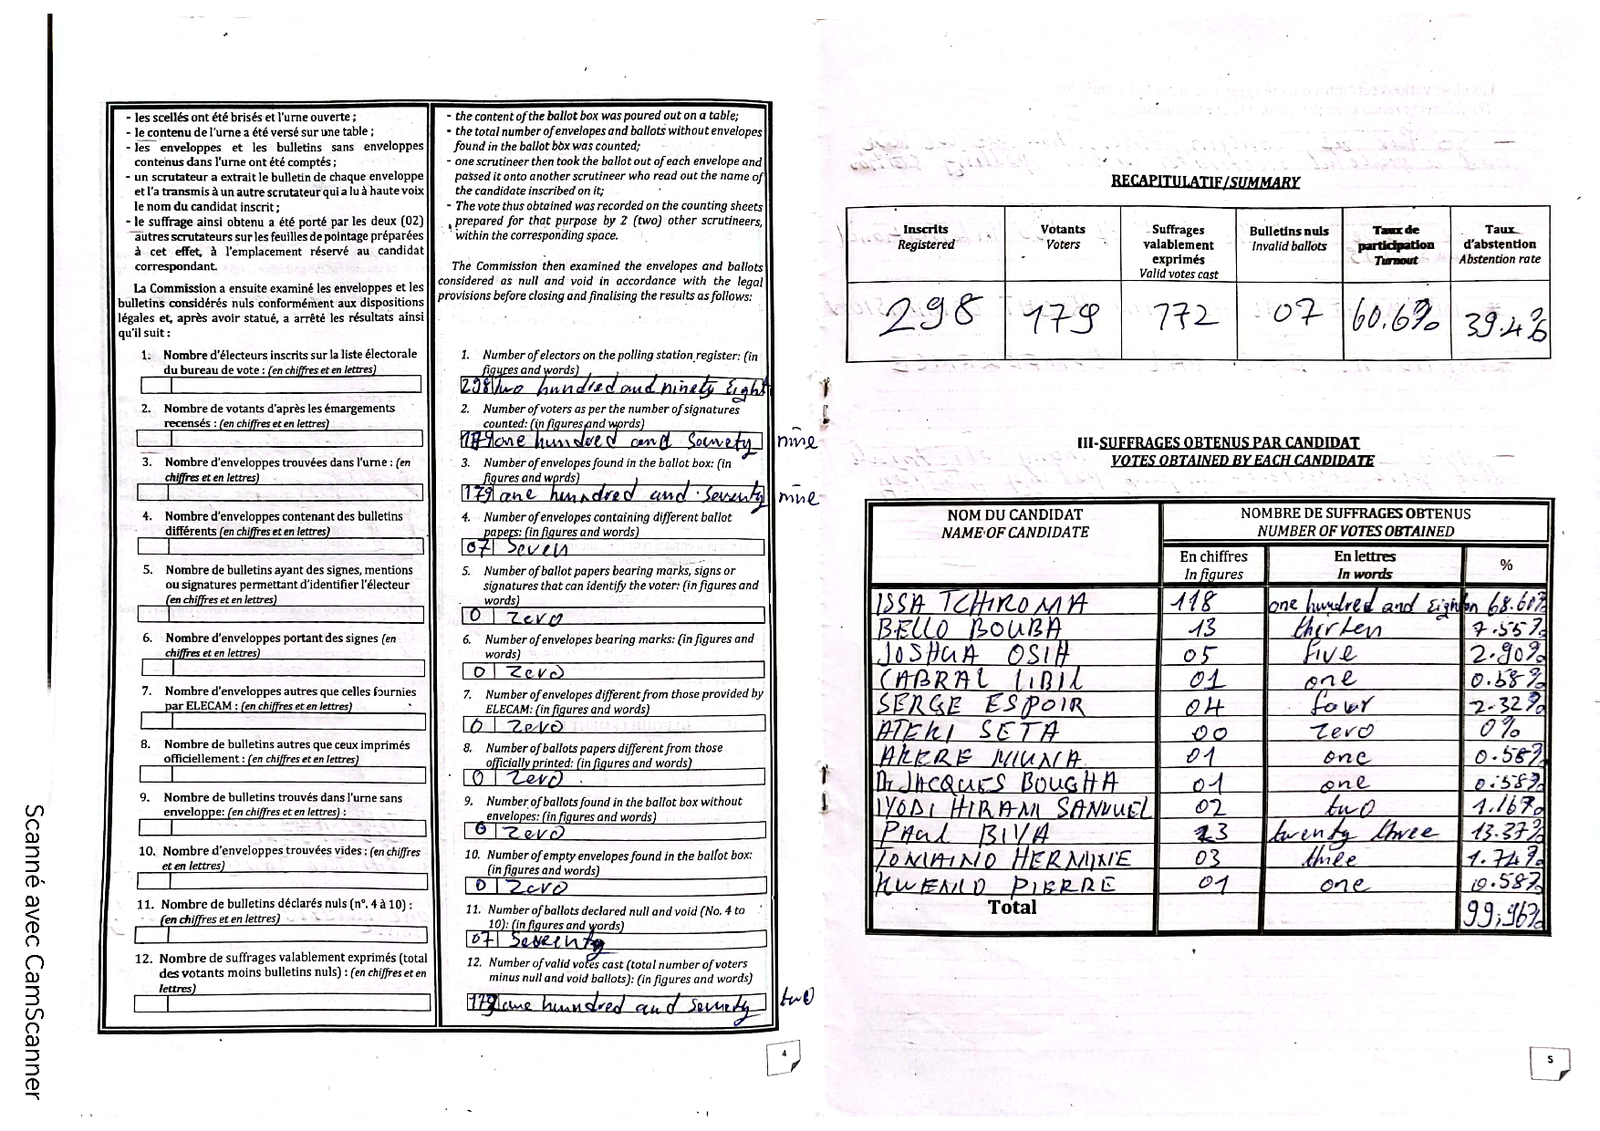 - les scellés ont été brisés et l'urne ouverte ;
- le contenu de l'urne a été versé sur une table ;
- les enveloppes et les bulletins sans enveloppes
contenus dans l'urne ont été comptés ;
- un scrutateur a extrait le bulletin de chaque enveloppe
et l'a transmis à un autre scrutateur qui a lu à haute voix
le nom du candidat inscrit ;
- le suffrage ainsi obtenu a été porté par les deux (02)
autres scrutateurs sur les feuilles de pointage préparées
à cet effet, à l'emplacement réservé au candidat
correspondant.
La Commission a ensuite examiné les enveloppes et les
bulletins considérés nuls conformément aux dispositions
légales et, après avoir statué, a arrêté les résultats ainsi
qu'il suit :
1. Nombre d'électeurs inscrits sur la liste électorale
du bureau de vote : (en chiffres et en lettres)
2. Nombre de votants d'après les émargements
recensés : (en chiffres et en lettres)
3. Nombre d'enveloppes trouvées dans l'urne : (en
chiffres et en lettres)
4. Nombre d'enveloppes contenant des bulletins
différents (en chiffres et en lettres)
5. Nombre de bulletins ayant des signes, mentions
ou signatures permettant d'identifier l'électeur
(en chiffres et en lettres)
6. Nombre d'enveloppes portant des signes (en
chiffres et en lettres)
7. Nombre d'enveloppes autres que celles fournies
par ELECAM : (en chiffres et en lettres)
8. Nombre de bulletins autres que ceux imprimés
officiellement : (en chiffres et en lettres)
9. Nombre de bulletins trouvés dans l'urne sans
enveloppe: (en chiffres et en lettres) :
10. Nombre d'enveloppes trouvées vides : (en chiffres
et en lettres)
11. Nombre de bulletins déclarés nuls (n°. 4 à 10) :
(en chiffres et en lettres)
12. Nombre de suffrages valablement exprimés (total
des votants moins bulletins nuls) : (en chiffres et en
lettres)
- the content of the ballot box was poured out on a table;
- the total number of envelopes and ballots without envelopes
found in the ballot box was counted;
- one scrutineer then took the ballot out of each envelope and
passed it onto another scrutineer who read out the name of
the candidate inscribed on it;
- The vote thus obtained was recorded on the counting sheets
prepared for that purpose by 2 (two) other scrutineers,
within the corresponding space.
The Commission then examined the envelopes and ballots
considered as null and void in accordance with the legal
provisions before closing and finalising the results as follows:
1. Number of electors on the polling station register: (in
figures and words)
298 two hundred and ninety Eight
2. Number of voters as per the number of signatures
counted: (in figures and words)
179 one hundred and Sovnety nine
3. Number of envelopes found in the ballot box: (in
figures and words)
179 one hundred and Seventy nine
4. Number of envelopes containing different ballot
papers: (in figures and words)
07 Seven
5. Number of ballot papers bearing marks, signs or
signatures that can identify the voter: (in figures and
words)
0 Zero
6. Number of envelopes bearing marks: (in figures and
words)
0 Zero
7. Number of envelopes different from those provided by
ELECAM: (in figures and words)
0 Zero
8. Number of ballots papers different from those
officially printed: (in figures and words)
0 Zero
9. Number of ballots found in the ballot box without
envelopes: (in figures and words)
0 Zero
10. Number of empty envelopes found in the ballot box:
(in figures and words)
0 Zero
11. Number of ballots declared null and void (No. 4 to
10): (in figures and words)
07
12. Number of valid votes cast (total number of voters
minus null and void ballots): (in figures and words)
one hundred and Seventy two
4
RECAPITULATIF/SUMMARY
Inscrits Registered
Votants Voters
Suffrages valablement exprimés Valid votes cast
Bulletins nuls Invalid ballots
Taux de participation Turnout
Taux d'abstention Abstention rate
298 179 172 07 60.6% 39.4%
III-SUFFRAGES OBTENUS PAR CANDIDAT
VOTES OBTAINED BY EACH CANDIDATE
NOM DU CANDIDAT NOMBRE DE SUFFRAGES OBTENUS
NAME OF CANDIDATE NUMBER OF VOTES OBTAINED
En chiffres En lettres %
In figures In words
ISSA TCHIROMA 118 one hundred and Eighten 68.60%
BELLO BOUBA 13 thirten 7.55%
JOSHUA OSIH 05 five 2.90%
CABRAL LIBII 01 one 0.58%
SERGE ESPOIR 04 four 2.32%
ATEKI SETA 00 zero 0%
AKERE MUNA 01 one 0.58%
Dr JACQUES BOUGHA 01 one 0.58%
IYODI HIRAM SAMUEL 02 two 1.16%
PAUL BIYA 23 twenty three 13.37%
TOMAINO HERMINE 03 three 1.74%
KWEMO PIERRE 01 one 0.58%
Total 99,96%
5
Scanné avec CamScanner